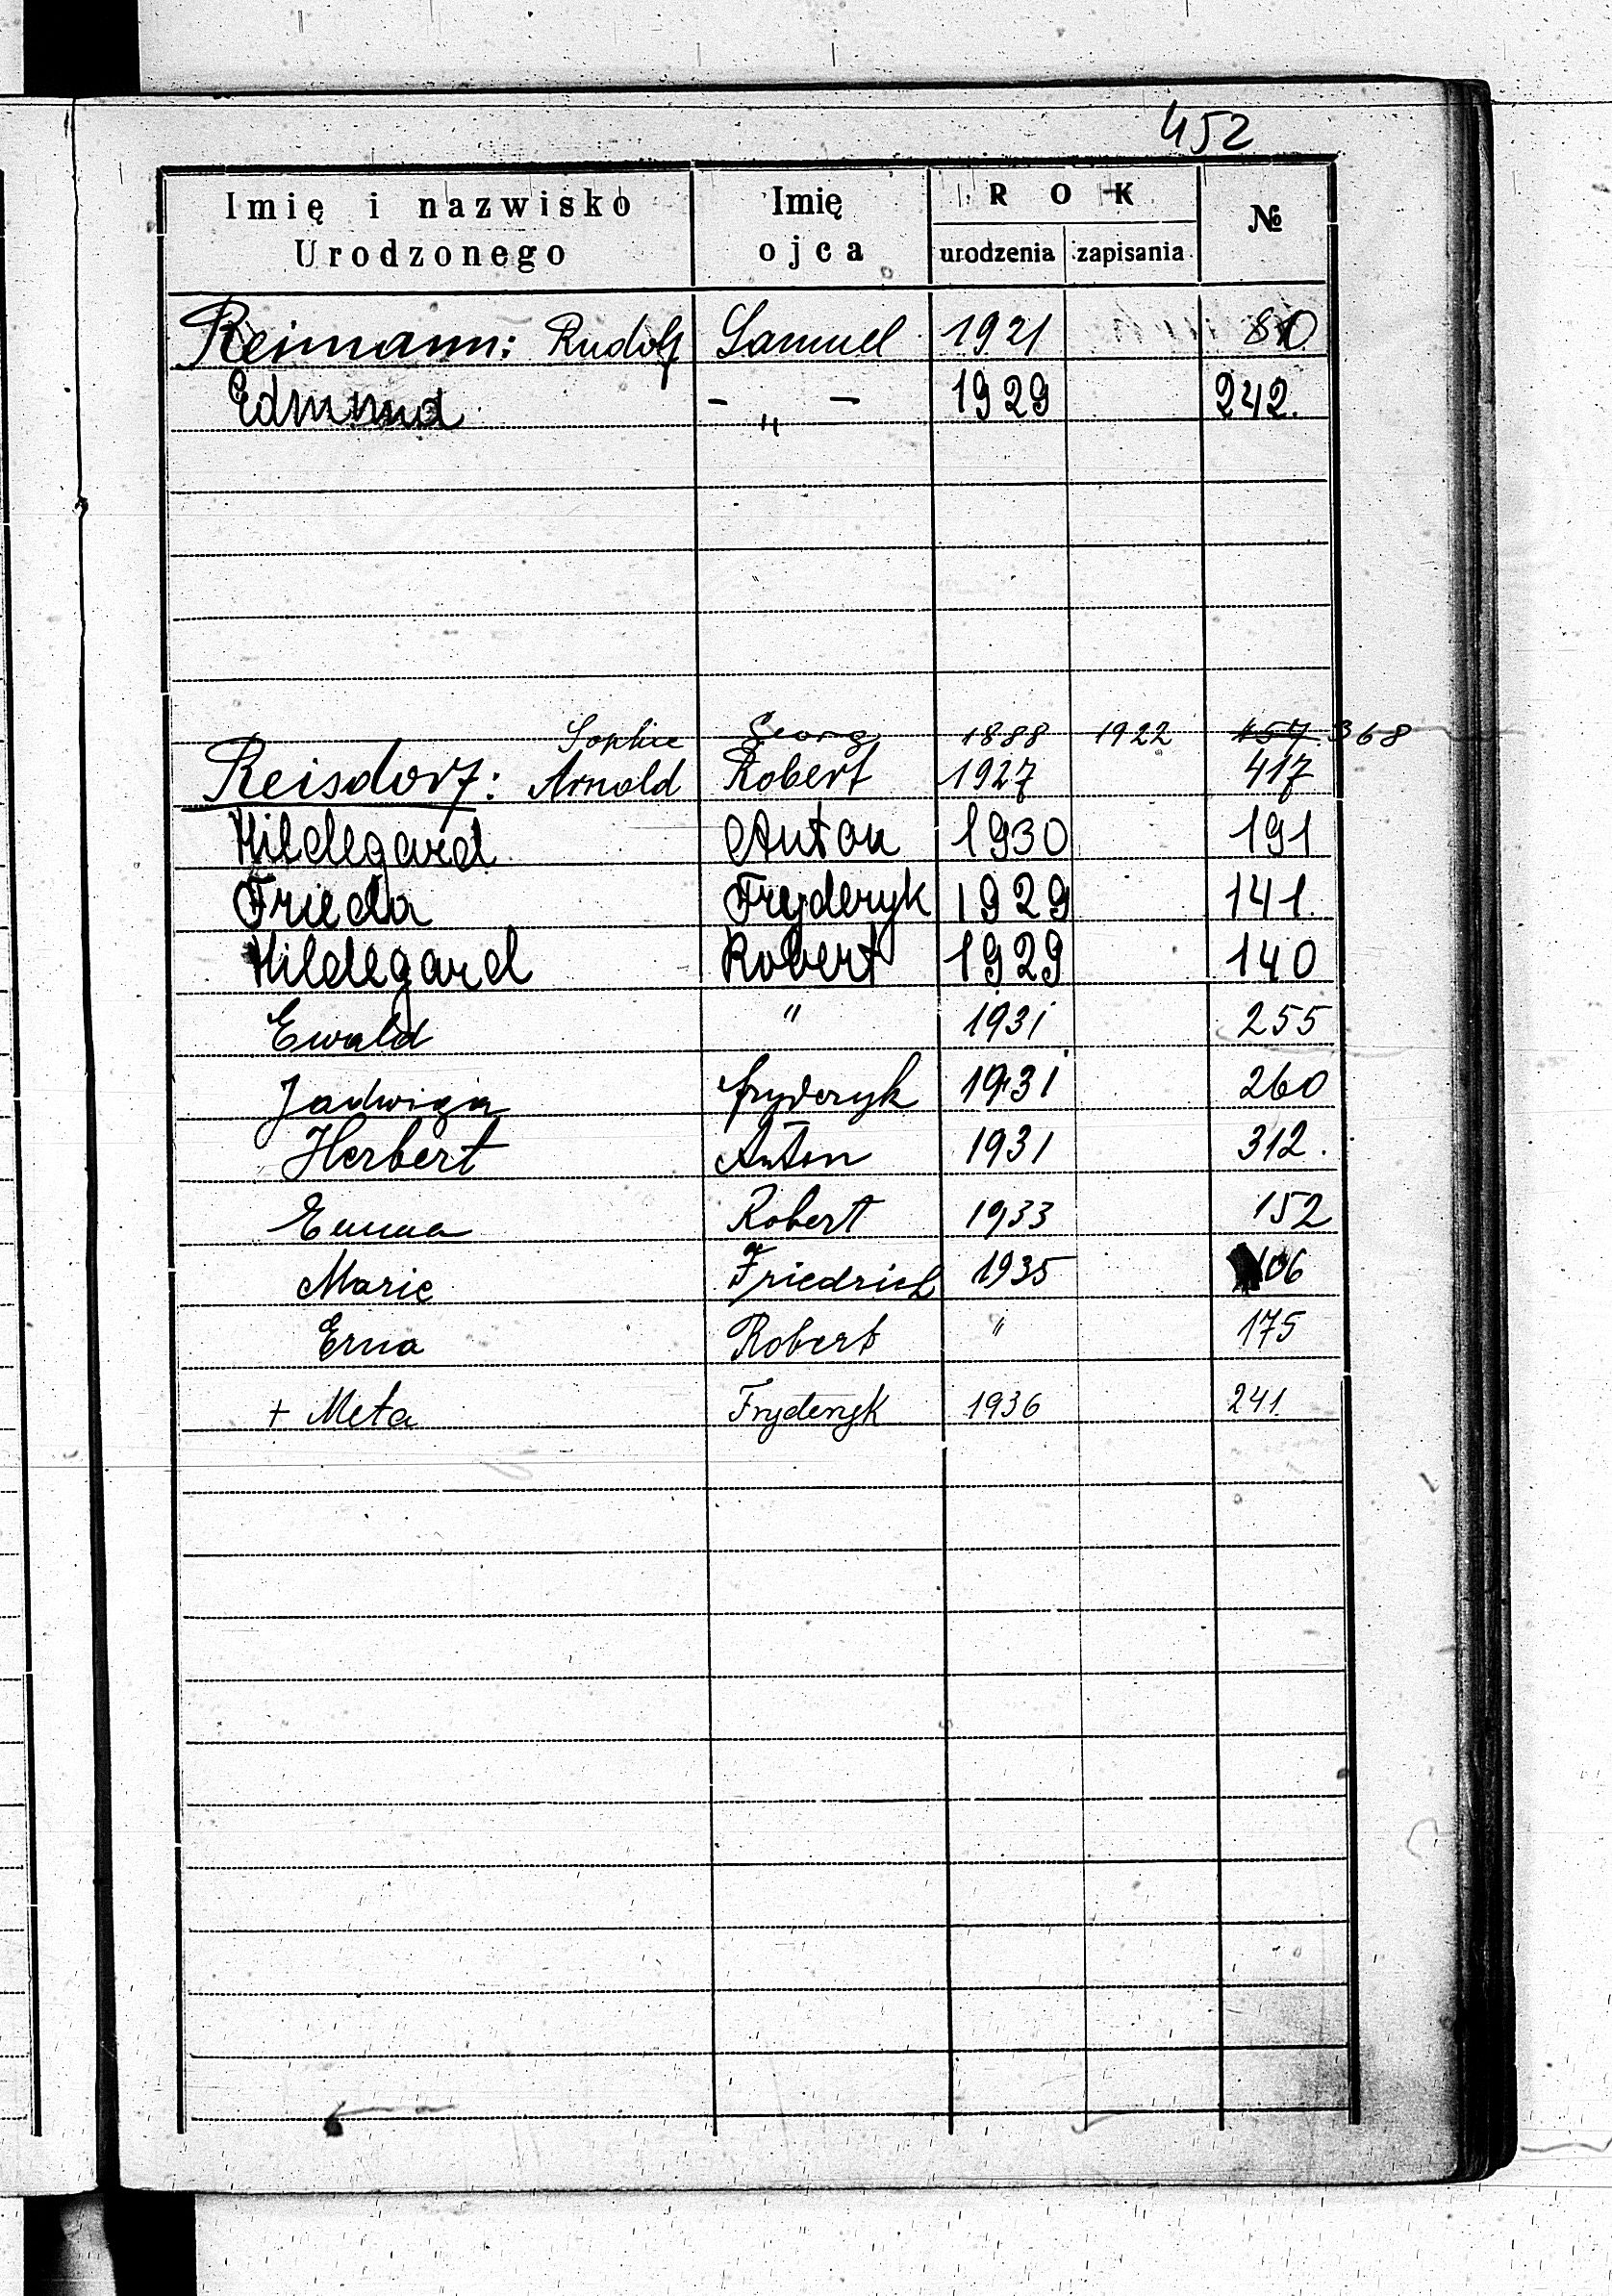 452
Imię i nazwisko Urodzonego | Imię ojca | ROK urodzenia | zapisania | №
Reimann: Rudolf Samuel 1921 80
Edmund - „ - 1929 242.
Sophie Georg 1888 1922 457 368
Reisdorf: Arnold Robert 1927 417
Hildegard Anton 1930 191
Frieda Fryderyk 1929 141.
Hildegard Robert 1929 140
Ewald " 1931 255
Jadwiga Fryderyk 1931 260
Herbert Anton 1931 312.
Emma Robert 1933 152
Marie Friedrich 1935 106
Erna Robert " 175
+ Meta Fryderyk 1936 241.